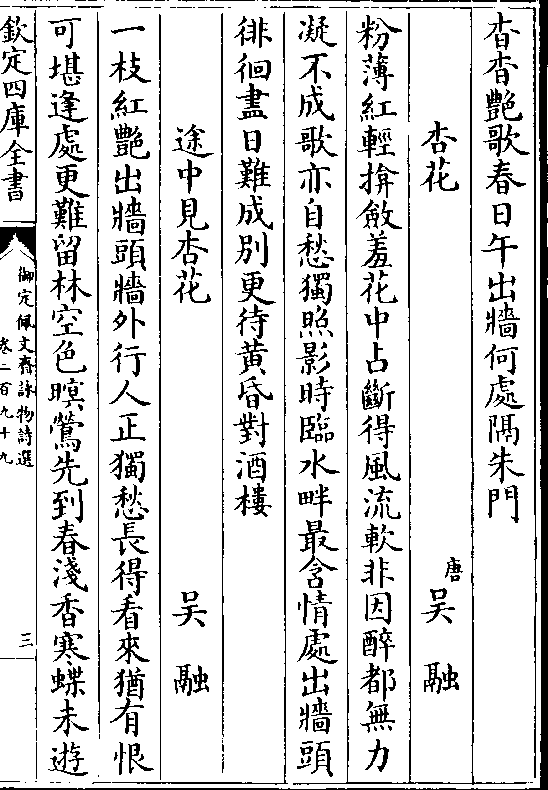 杳杳艷歌春日午出牆何處隔朱門
杏花
唐
吴融
粉薄紅輕掩斂羞花中占斷得風流軟非因醉都無力
凝不成歌亦自愁獨照影時臨水畔最含情處出牆頭
徘徊盡日難成別更待黄昏對酒樓
途中見杏花
吴融
一枝紅艷出牆頭牆外行人正獨愁長得看來猶有恨
可堪逢處更難留林空色暝鶯先到春淺香寒蝶未遊
欽定四庫全書
御定佩文齋詠物詩選
卷二百九十九
三